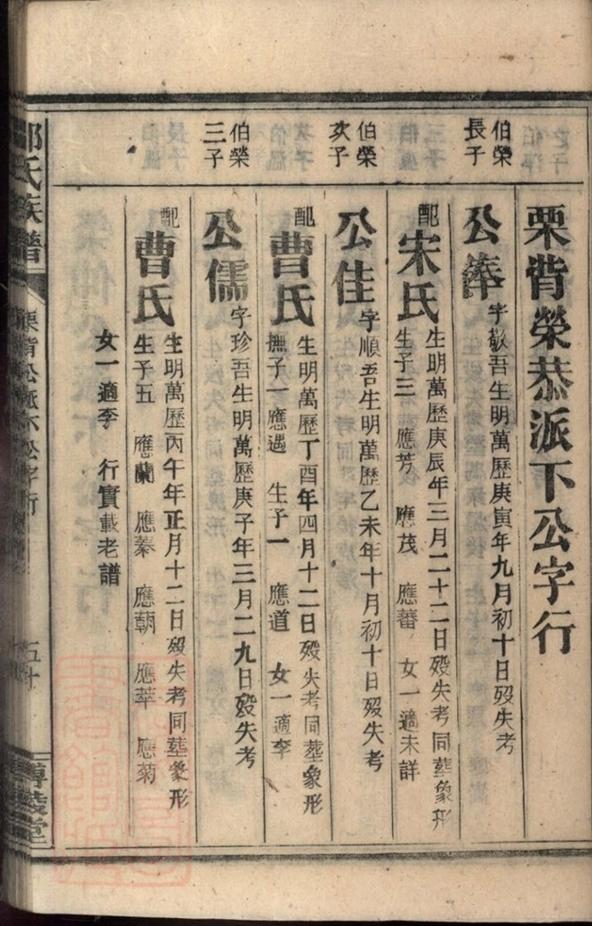 栗背榮恭派下公字行
伯榮
長子
公俸 字敬吾生明萬歷庚寅年九月初十日歿失考
配宋氏 生明萬歷庚辰年三月二十二日歿失考同塟象形
生子三 應芳 應茂 應蕃 女一適未詳
伯榮
次子
公佳 字順吾生明萬歷乙未年十月初十日歿失考
配曹氏 生明萬歷丁酉年四月十二日歿失考同塟象形
撫子一應遇 生子一 應道 女一適李
伯榮
三子
公儒 字珍吾生明萬歷庚子年三月二九日歿失考
配曹氏 生明萬歷丙午年正月十二日歿失考同塟象形
生子五 應蘭 應蓁 應朝 應萃 應菊
女一適李 行實載老譜
氏族譜
栗背公派下公字行
五十
堂